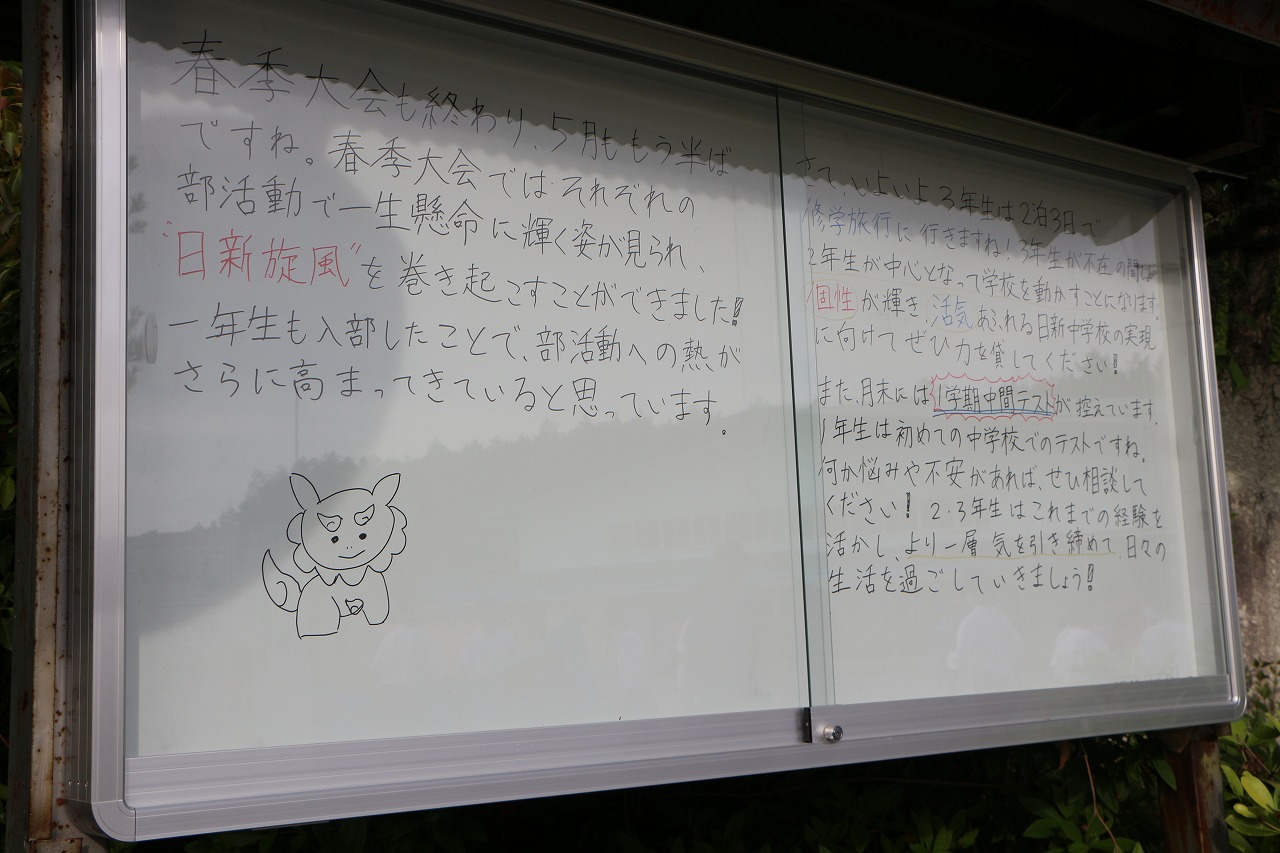 春季大会も終わり、5月ももう半ば
ですね。春季大会ではそれぞれの
部活動で一生懸命に輝く姿が見られ、
"日新旋風"を巻き起こすことができました!
一年生も入部したことで、部活動への熱が
さらに高まってきていると思っています。
さて、いよいよ3年生は2泊3日で
修学旅行に行きますね!3年生が不在の間は
2年生が中心となって学校を動かすことになります。
個性が輝き、活気あふれる日新中学校の実現
に向けてぜひ力を貸してください!
また、月末には1学期中間テストが控えています。
1年生は初めての中学校でのテストですね。
何か悩みや不安があれば、ぜひ相談して
ください! 2・3年生はこれまでの経験を
活かし、より一層 気を引き締めて 日々の
生活を過ごしていきましょう!